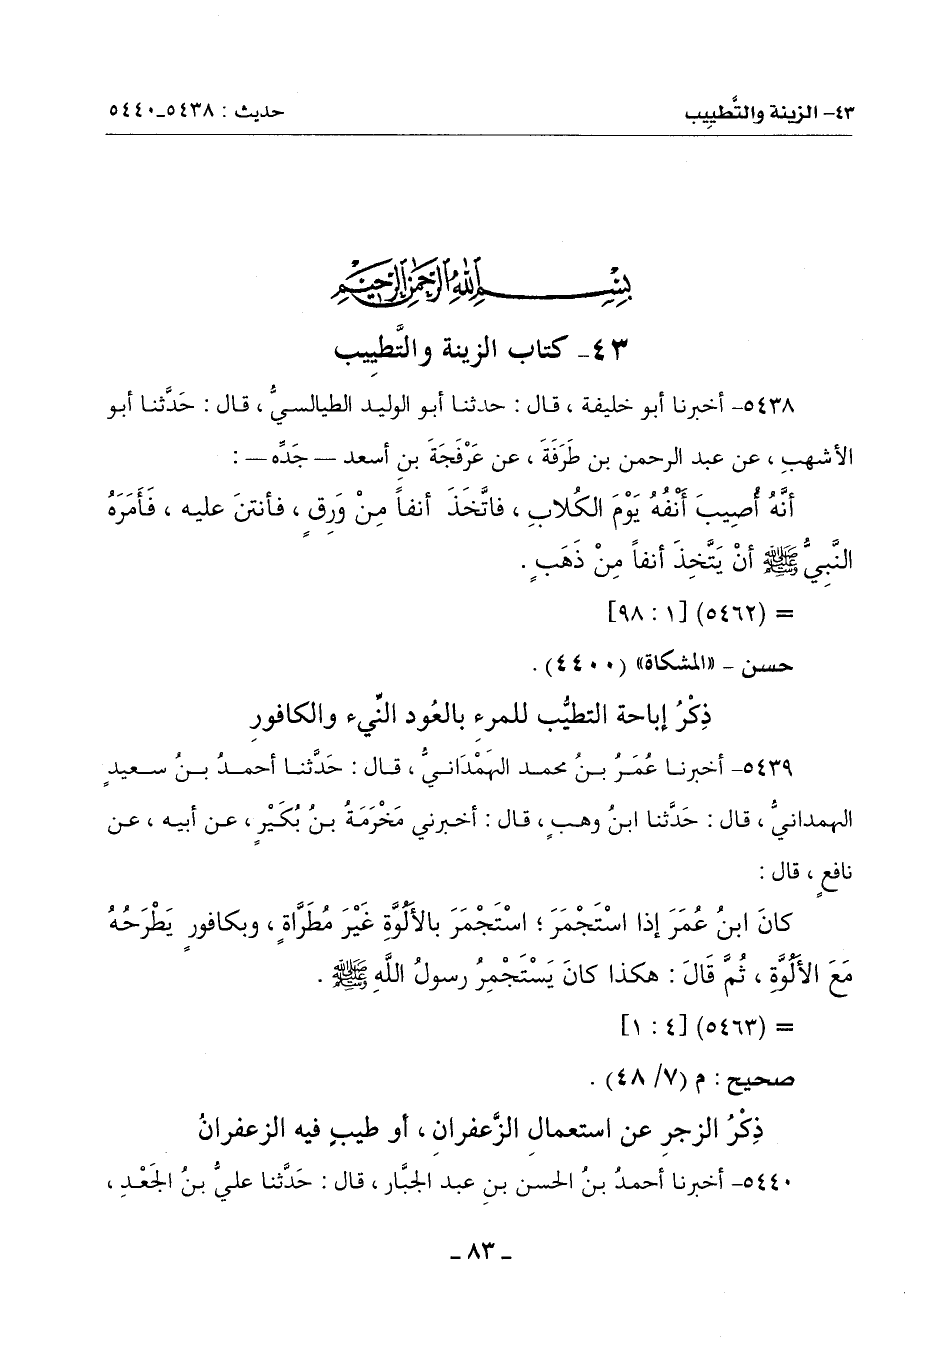 ٤٣- الزينة والتَّطيِيب حديث : ٥٤٣٨-٥٤٤٠
بِسْمِ اللهِ الرَّحْمَنِ الرَّحِيمِ
٤٣- كتاب الزينة والتَّطيِيب
٥٤٣٨- أخبرنا أبو خليفة ، قال : حدثنا أبو الوليد الطيالسيُّ ، قال : حَدَّثنا أبو
الأشهبِ ، عن عبد الرحمن بن طَرَفَةَ ، عن عَرْفَجَةَ بنِ أسعد — جَدِّه — :
أنَّهُ أُصِيبَ أَنْفُهُ يَوْمَ الكُلابِ ، فاتَّخَذَ أنفاً مِنْ وَرِقٍ ، فأنتنَ عليه ، فَأَمَرَهُ
النَّبِيُّ ﷺ أنْ يَتَّخِذَ أنفاً مِنْ ذَهَبٍ .
= (٥٤٦٢) [١ : ٩٨]
حسن - «المشكاة» (٤٤٠٠) .
ذِكْرُ إباحة التطيُّب للمرءِ بالعُود النِّيء والكافورِ
٥٤٣٩- أخبرنا عُمَرُ بنُ محمد الهَمْدَانيُّ ، قال : حَدَّثنا أحمدُ بنُ سعيدٍ
الهمدانيُّ ، قال : حَدَّثنا ابنُ وهبٍ ، قال : أخبرني مَخْرَمَةُ بنُ بُكَيْرٍ ، عن أبيه ، عن
نافعٍ ، قال :
كانَ ابنُ عُمَرَ إذا اسْتَجْمَرَ ؛ اسْتَجْمَرَ بالأَلُوَّةِ غَيْرَ مُطَرَّاةٍ ، وبكافورٍ يَطْرَحُهُ
مَعَ الأَلُوَّةِ ، ثُمَّ قَالَ : هكذا كانَ يَسْتَجْمِرُ رسولُ اللَّهِ ﷺ .
= (٥٤٦٣) [٤ : ١]
صحيح : م (٧/ ٤٨) .
ذِكْرُ الزجرِ عن استعمالِ الزَّعفرانِ ، أو طيبٍ فيه الزعفرانُ
٥٤٤٠- أخبرنا أحمدُ بنُ الحسن بنِ عبد الجبَّار ، قال : حَدَّثنا عليُّ بنُ الجَعْدِ ،
- ٨٣ -